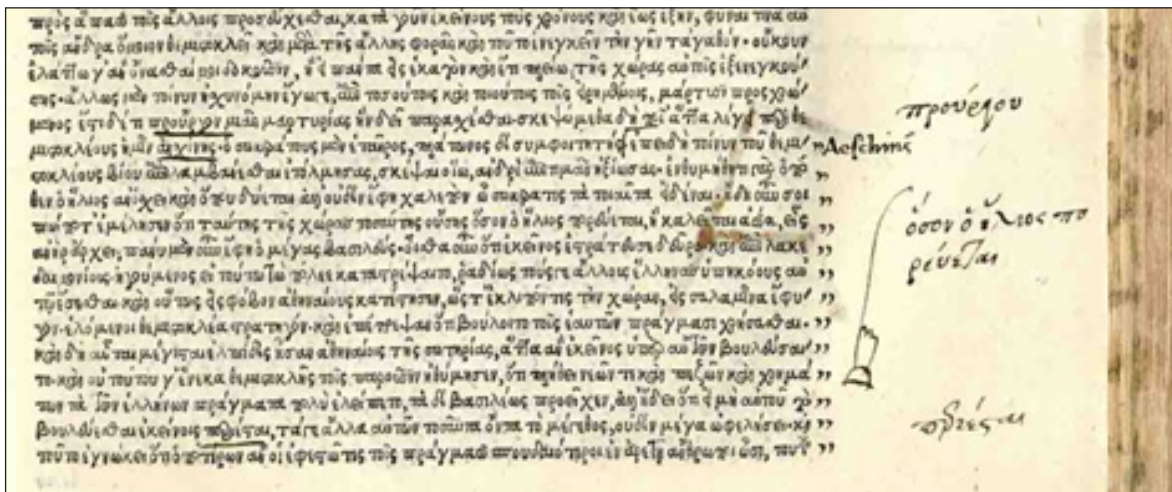 πρὸς ἅπασι τοῖς ἄλλοις προσεύχεσθαι, κατὰ γοῦν ἐκείνους τοὺς χρόνους καὶ ἕως ἐξῆν, φῦναί τινα αὐ
τοῖς ἄνδρα ὅποιον θεμιστοκλεῖ καὶ μετὰ τῆς ἄλλης φορᾶς καὶ τοῦτο ἐνεγκεῖν τὴν γῆν τἀγαθόν. οὔκουν
τοσούτοις καὶ τοιούτοις τοῖς μάρτυσι προσχρώ
μενος ἔτι δέ τι προὔργου μᾶλλον μαρτυρίας σκεψώμεθα δὴ τί λέγει περὶ θε
μιστοκλέους ἡμῖν αἰσχίνης, ὁ σωκράτους μὲν ἑταῖρος, πλάτωνος δὲ συμφοιτητής. ἐπειδὴ τοίνυν τοῦ θεμι „ Aeschines
στοκλέους βίου ἐπιλαμβάνεσθαι ἐτόλμησας, σκέψαι οἵῳ ἀνδρὶ ἐπιτιμᾶν ἠξίωσας. ἐνθυμήθητι γὰρ ὁπό „
θεν ὁ ἥλιος ἀνίσχει καὶ ὅπου δύεται. ἀλλ' οὐδὲν ἔφη χαλεπὸν ὦ σώκρατες τὰ τοιαῦτα εἰδέναι. ἤδη οὖν σοι „
πώποτ' ἐμέλησεν ὅτι ταύτης τῆς χώρας τοσαύτης οὔσης ὅσον ὁ ἥλιος πορεύεται, ἣ καλεῖται ἀσία, εἷς „
ἀνὴρ ἄρχει, πάνυ μὲν οὖν ἔφη ὁ μέγας βασιλεύς. οἶσθα οὖν ὅτι ἐκεῖνος ἐστράτευσε δεῦρο καὶ ἐπὶ λακε „
δαιμονίους, ἡγούμενος εἰ τούτω τὼ πόλει καταστρέψαιτο, ῥαδίως τούς γε ἄλλους ἕλληνας ὑπηκόους αὐ „
τῷ ἔσεσθαι. καὶ οὕτως εἰς φόβον ἀθηναίους κατέστησεν, ὥστ' ἐκλιπόντες τὴν χώραν, εἰς σαλαμῖνα ἔφυ „
γον. ἑλόμενοι θεμιστοκλέα στρατηγόν. καὶ ἐπέτρεψαν ὅτι βούλοιτο τοῖς ἑαυτῶν πράγμασι χρήσασθαι. „
καὶ δὴ αὗται μέγισται ἐλπίδες ἦσαν ἀθηναίοις τῆς σωτηρίας, ἅττα ἂν ἐκεῖνος ὑπὲρ αὐτῶν βουλεύσαι „
το. καὶ οὐ τούτου γ' ἕνεκα θεμιστοκλῆς τοῖς παροῦσιν ἠθύμησεν, ὅτι πλήθει νεῶν τε καὶ πεζῶν καὶ χρημά „
των τὰ τῶν ἑλλήνων πράγματα πολὺ ἐλείπετο, τὰ δὲ βασιλέως προεῖχεν, ἀλλ' ᾔδει ὅτι εἰ μὴ αὐτοῦ τῷ „
βουλεύεσθαι ἐκεῖνος περιέσται, τά γε ἄλλα αὐτὸν τοσαῦτα ὄντα τὸ μέγεθος, οὐδὲν μέγα ὠφελήσει. καὶ „
τοῦτο ἐγνώκει ὅτι ὁποτέρων ἂν οἱ ἐφεστῶτες τοῖς πράγμασι σπουδαιότεροι ἐς ἀρετὴν ἄνθρωποι ὦσι, τούτ „
προύργου
ὅσον ὁ ἥλιος πο
ρεύεται